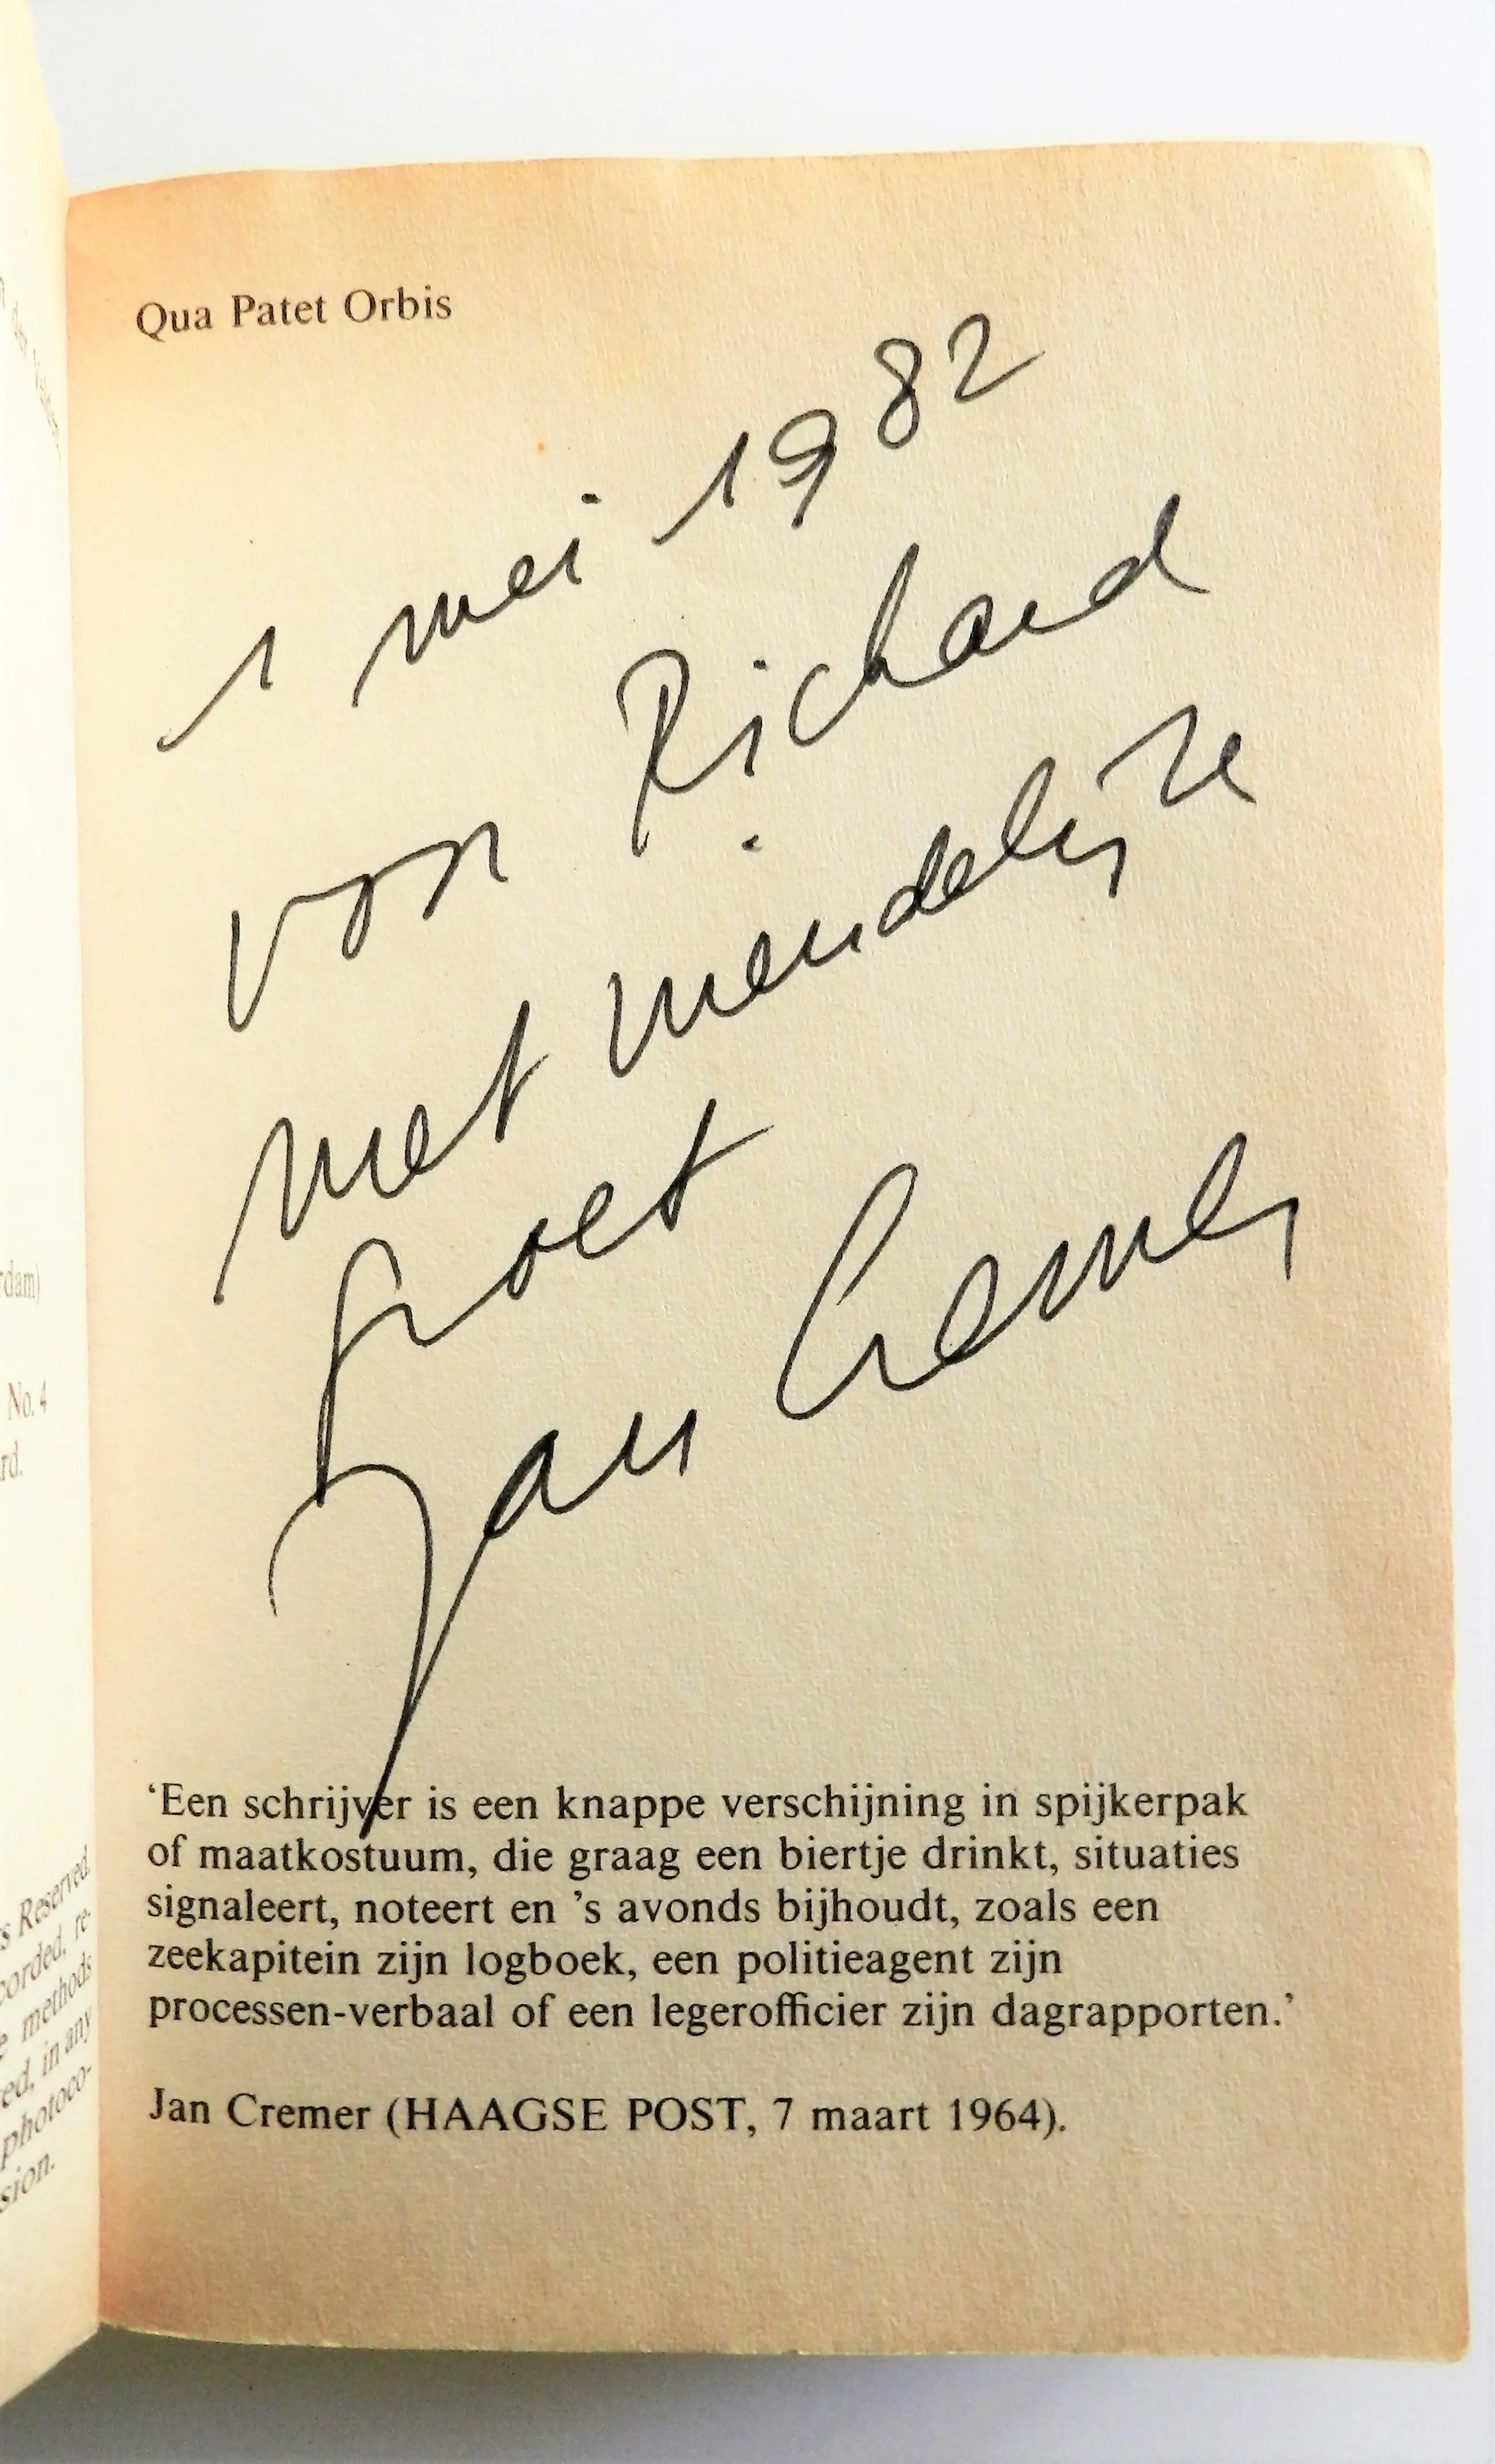 rdam)
No. 4
rd.
s Reserved.
corded, re-
e methods
ed, in any
photoco-
sion.
Qua Patet Orbis
1 mei 1982
voor Richard
met vriendelijke
groet
Jan Cremer
‘Een schrijver is een knappe verschijning in spijkerpak
of maatkostuum, die graag een biertje drinkt, situaties
signaleert, noteert en ’s avonds bijhoudt, zoals een
zeekapitein zijn logboek, een politieagent zijn
processen-verbaal of een legerofficier zijn dagrapporten.’
Jan Cremer (HAAGSE POST, 7 maart 1964).